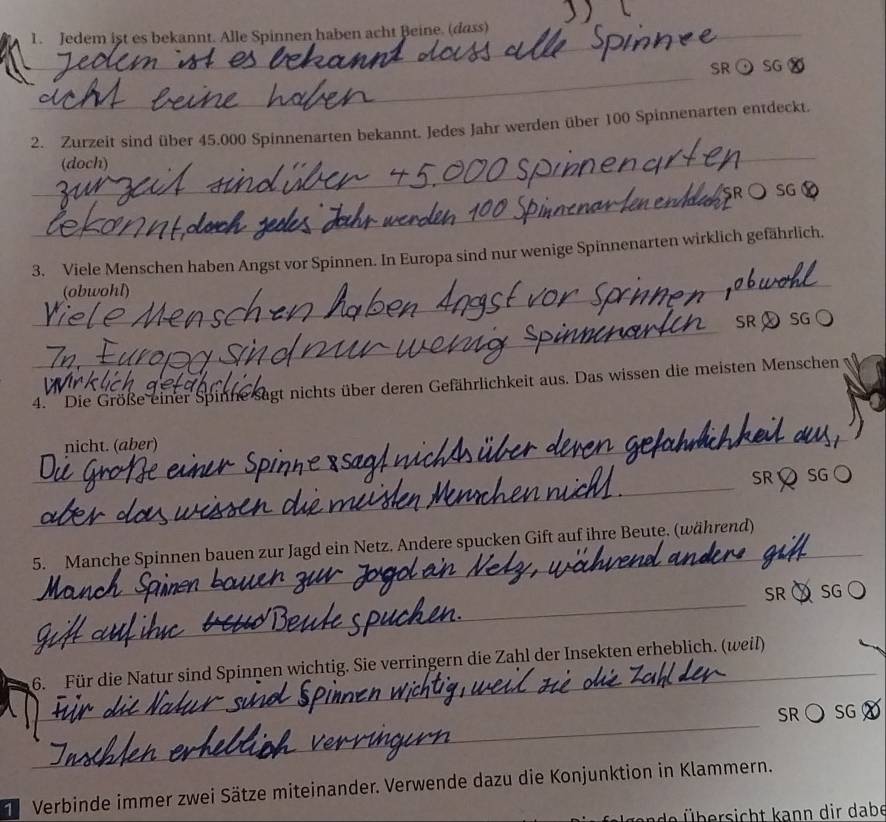 1. Jedem ist es bekannt. Alle Spinnen haben acht Beine. (dass)
Jedem ist es bekannt dass alle Spinnee
SR SG
acht beine haben
2. Zurzeit sind über 45.000 Spinnenarten bekannt. Jedes Jahr werden über 100 Spinnenarten entdeckt.
(doch)
zurzeit sind über 45.000 spinnenarten
bekannt, doch jedes Jahr werden 100 Spinnenarten entdeckt SR SG
3. Viele Menschen haben Angst vor Spinnen. In Europa sind nur wenige Spinnenarten wirklich gefährlich.
(obwohl)
Viele Menschen haben Angst vor Sprinnen, obwohl
SR SG
In Europa sind nur wenig spinnenarten
wirklich gefährlich
4. Die Größe einer Spinne sagt nichts über deren Gefährlichkeit aus. Das wissen die meisten Menschen
nicht. (aber)
Die Große einer Spinne sagt nichts über deren gefährlichkeit aus,
SR SG
aber das wissen die meisten Menschen nicht.
5. Manche Spinnen bauen zur Jagd ein Netz. Andere spucken Gift auf ihre Beute. (während)
Manch Spinen bauen zur Jagd ein Netz, während andere gift
SR SG
gift auf ihre Beute spucken.
6. Für die Natur sind Spinnen wichtig. Sie verringern die Zahl der Insekten erheblich. (weil)
Für die Natur sind Spinnen wichtig, weil sie die Zahl der
SR SG
Insekten erheblich verringern
1 Verbinde immer zwei Sätze miteinander. Verwende dazu die Konjunktion in Klammern.
Übersicht kann dir dabe